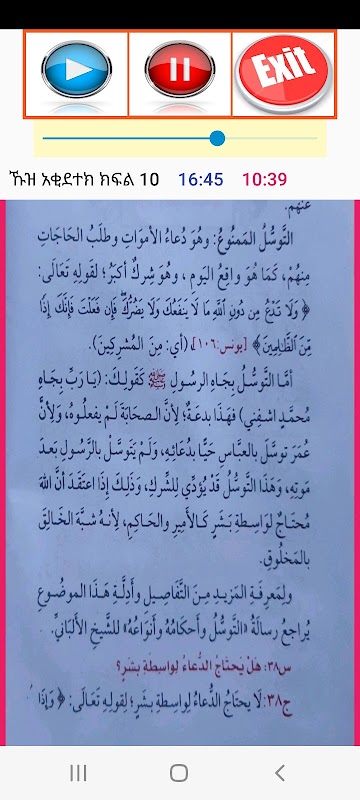 Exit
ኹዝ አቂደተክ ክፍል 10 16:45 10:39
عنهم.
التَّوسُّلُ المَمنُوعُ: وهُوَ دُعاءُ الأموَاتِ وطلَبُ الحَاجَاتِ
مِنهُمْ، كَمَا هُوَ واقِعُ اليَومِ، وهُوَ شِركٌ أكبَرُ؛ لِقَولِهِ تَعَالَى:
﴿ وَلَا تَدْعُ مِن دُونِ اللَّهِ مَا لَا يَنفَعُكَ وَلَا يَضُرُّكَ فَإِن فَعَلْتَ فَإِنَّكَ إِذًا
مِّنَ الظَّالِمِينَ ﴾ [يونس:١٠٦]، (أي: مِنَ المُشرِكِينَ).
أمَّا التَّوسُّلُ بِجَاهِ الرسولِ ﷺ كَقَولِكَ: (يَا رَبِّ بِجَاهِ
مُحمَّدٍ اشفِنِي) فهَذَا بدعَةٌ؛ لِأنَّ الصحَابَةَ لَمْ يفعلُوهُ، وَلِأنَّ
عُمَرَ توسَّلَ بالعبَّاسِ حَيًّا بدُعائِهِ، ولَمْ يَتَوسَّلْ بالرَّسولِ بعدَ
مَوتِهِ، وهَذَا التَّوسُّلُ قَدْ يُؤدِّي لِلشِّركِ، وَذلِكَ إذَا اعتَقَدَ أنَّ اللهَ
مُحتَاجٌ لوَاسِطةِ بَشَرٍ كَالأمِيرِ والحَاكِمِ، لِأنَّهُ شبَّهَ الخَالِقَ
بالمَخلُوقِ.
ولِمَعرِفَةِ المَزِيدِ مِنَ التَّفَاصِيلِ وأدلَّةِ هَذَا الموضُوعِ
يُراجعُ رسالَةُ «التَّوسُّلُ وأحكَامُهُ وأنوَاعُهُ» للشَّيخِ الألبَانِيِّ.
س٣٨: هَلْ يَحتَاجُ الدُّعَاءُ لِوَاسِطَةِ بشَرٍ؟
ج٣٨: لَا يحتَاجُ الدُّعاءُ لِواسِطةِ بشَرٍ؛ لِقولِهِ تَعَالَى: ﴿ وَإِذَا